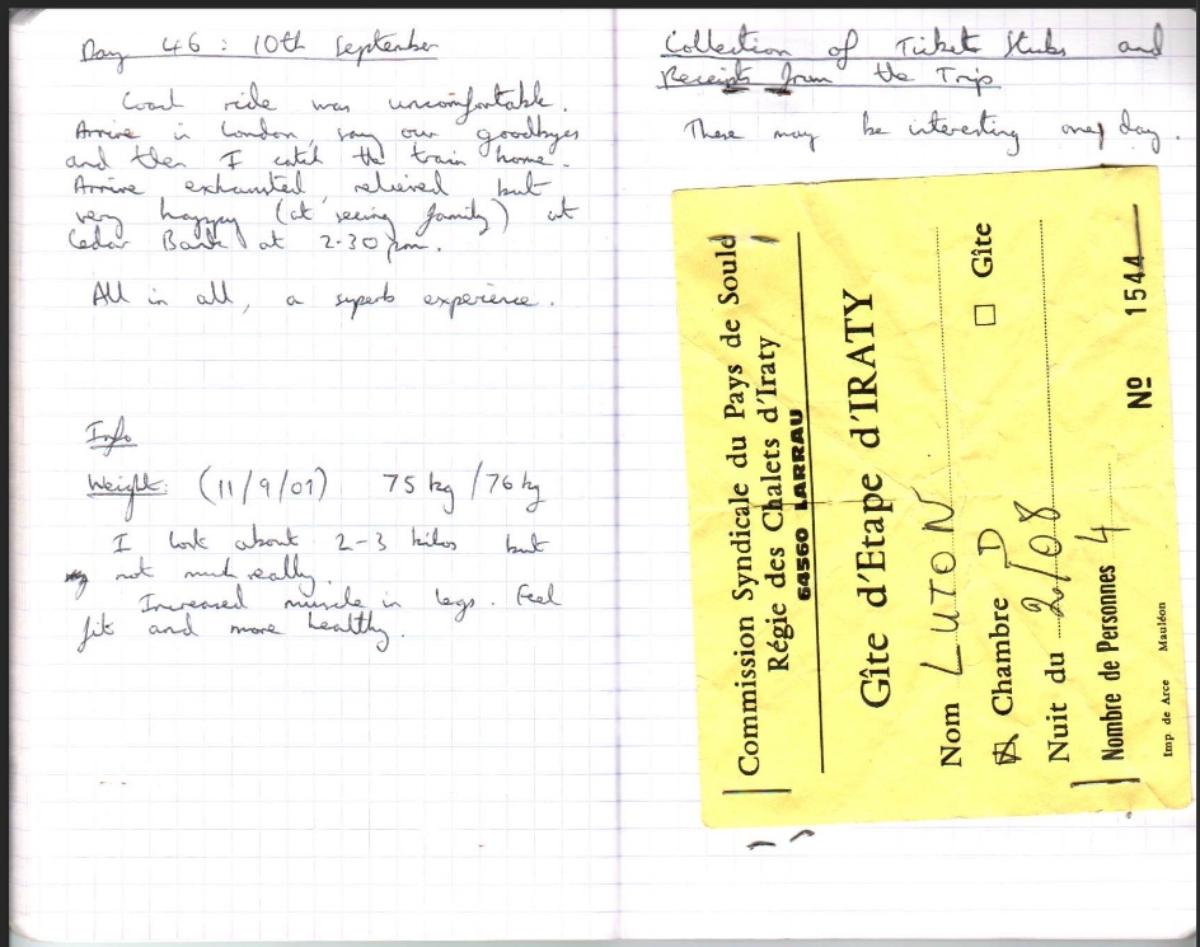 Day 46 : 10th September
Coach ride was uncomfortable.
Arrive in London, say our goodbyes
and then I catch the train home.
Arrive exhausted, relieved but
very happy (at seeing family) at
Cedar Bank at 2.30pm.
All in all, a superb experience.
Info
Weight: (11/9/01) 75 kg / 76 kg
I lost about 2-3 kilos but
not much really.
Increased muscle in legs. Feel
fit and more healthy.
Collection of Tickets Stubs and
Receipts from the Trip
These may be interesting one day.
Commission Syndicale du Pays de Soule
Régie des Chalets d'Iraty
64560 LARRAU
Gîte d'Etape d'IRATY
Nom LUTON
Chambre D □ Gîte
Nuit du 2/08
Nombre de Personnes 4 Nº 1544
Imp. de Arce Mauléon